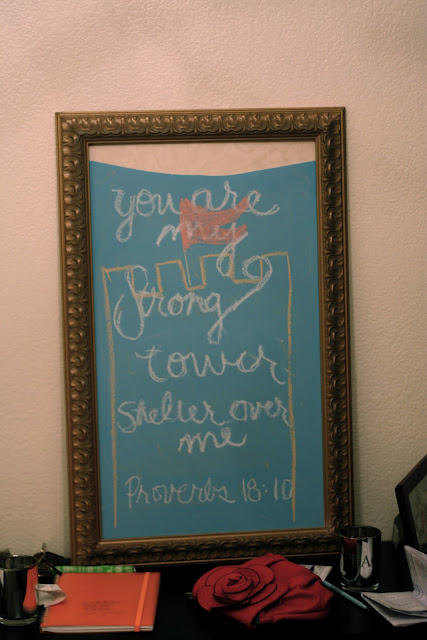 you are
my
Strong
tower
shelter over
me
Proverbs 18:10
A